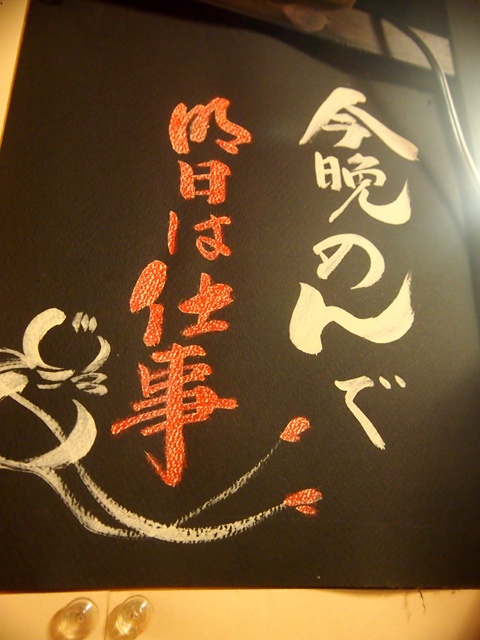 今晩のんで
明日は仕事